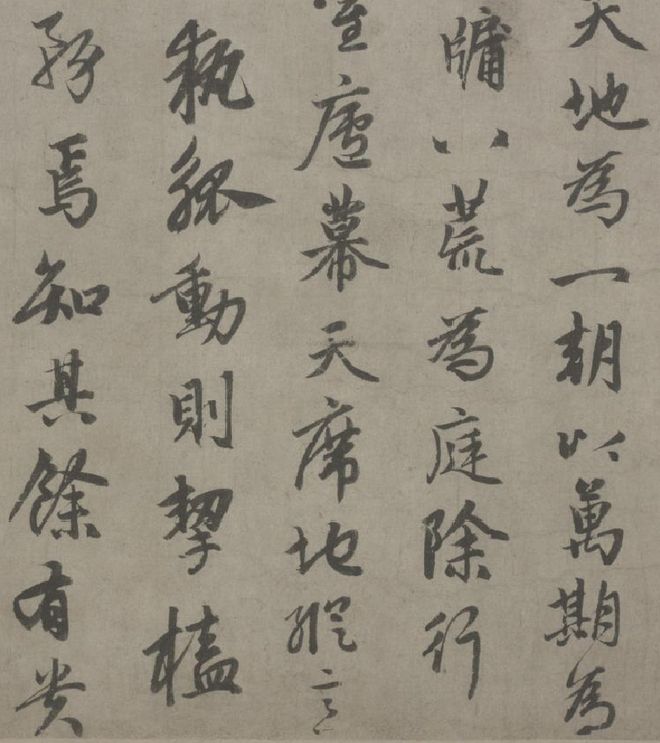 天地為一朝以萬期為
牖八荒為庭除行
室廬幕天席地縱意
執觚動則挈榼
務焉知其餘有貴